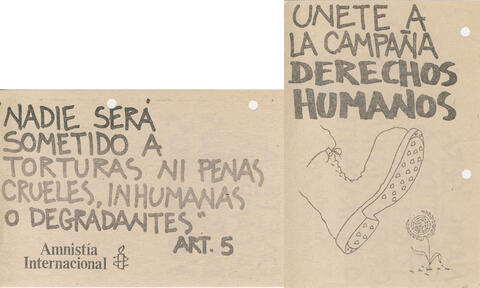 NADIE SERÁ
SOMETIDO A
TORTURAS NI PENAS
CRUELES, INHUMANAS
O DEGRADANTES"
ART. 5
Amnistía
Internacional
UNETE A
LA CAMPAÑA
DERECHOS
HUMANOS